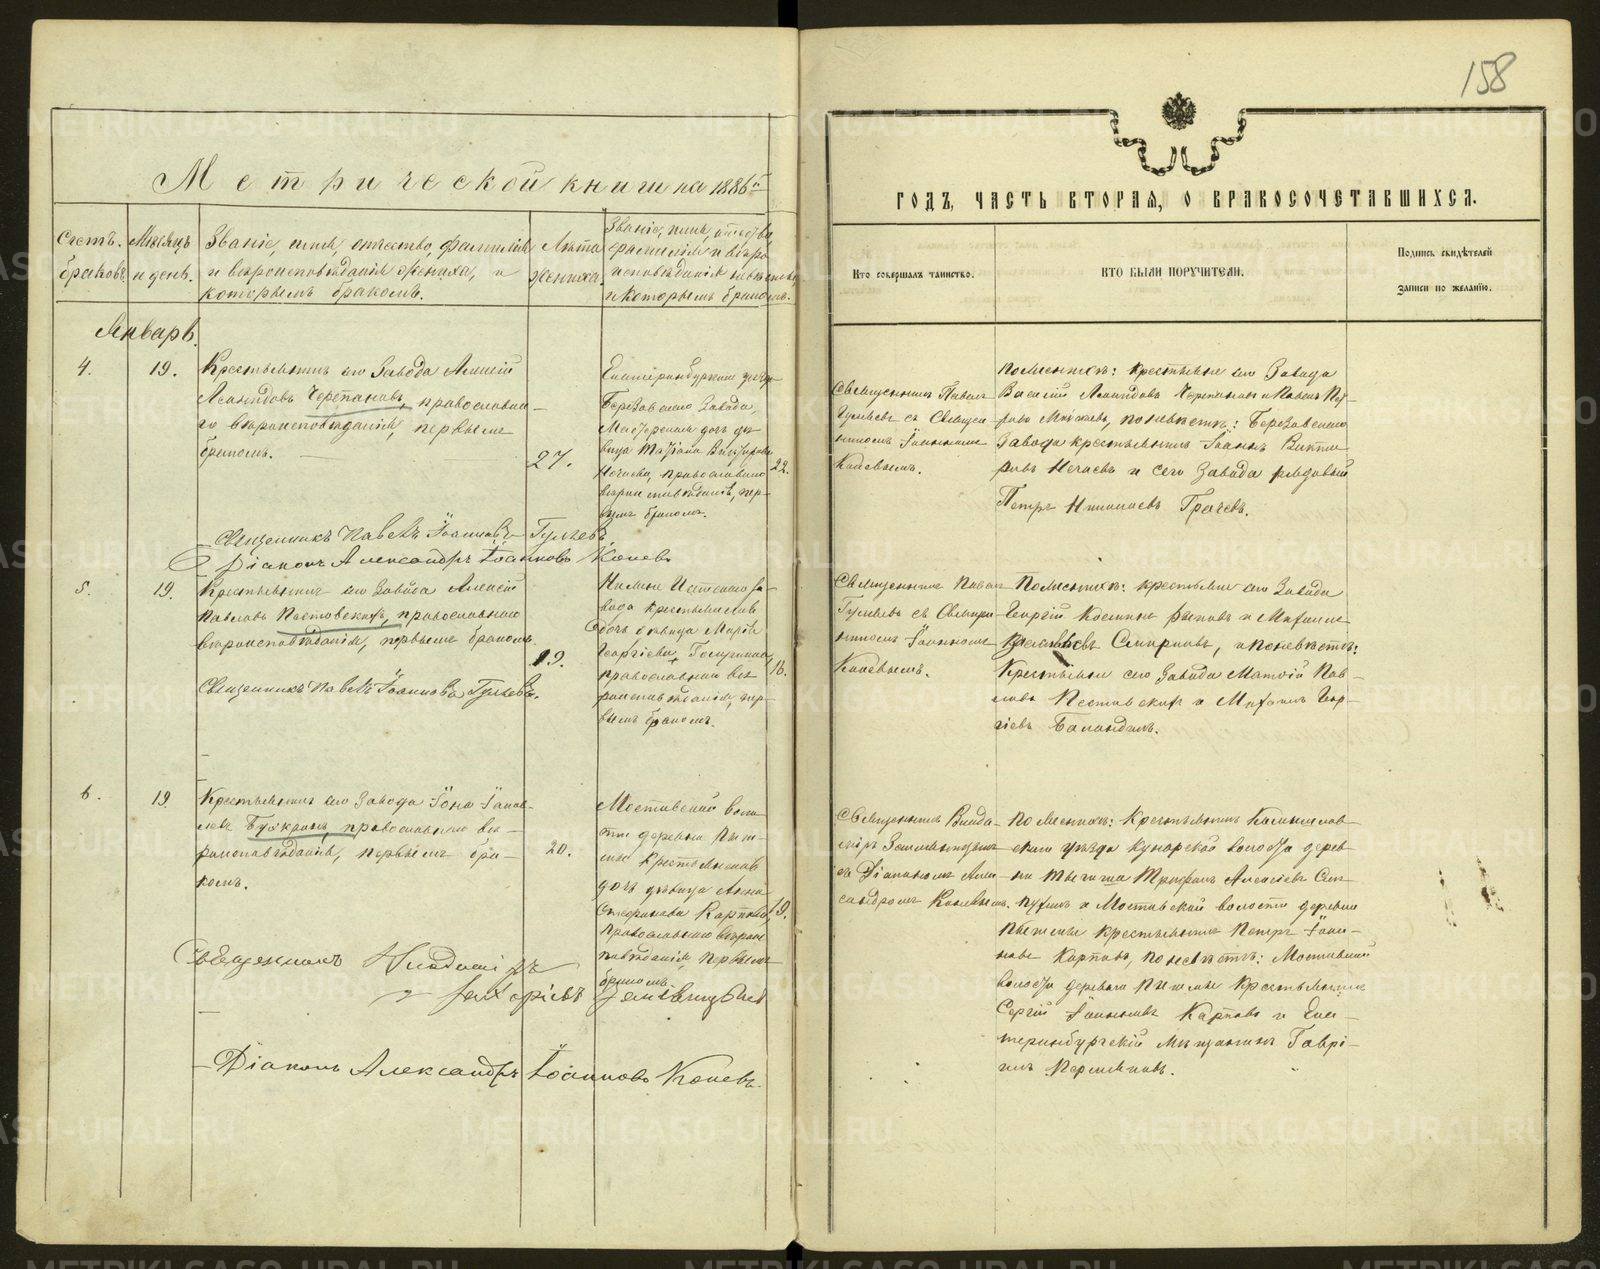 158
Метрической книги на 1886й
ГОДЪ, ЧАСТЬ ВТОРАЯ, О БРАКОСОЧЕТАВШИХСЯ.
Счетъ браковъ.
Мѣсяцъ и день.
Званіе, имя, отчество, фамилія
и вѣроисповѣданіе жениха, и
которымъ бракомъ.
Лѣта
жениха.
Званіе, имя, отчество
фамилія и вѣро
исповѣданіе невѣсты,
и которымъ бракомъ.
Кто совершалъ таинство.
КТО БЫЛИ ПОРУЧИТЕЛИ.
Подпись свидѣтелей
записи по желанію.
Январь.
4.
19.
Крестьянинъ сего Завода Алексій
Черепановъ, православна
го вѣроисповѣданія, первымъ
бракомъ.
27.
Екатеринбургскаго уѣзда
Березовскаго Завода,
дочь дѣ
вица Татіана
Нечаева, православнаго
вѣроисповѣданія, пер-
вымъ бракомъ.
22.
Священникъ Павелъ
Гуляевъ съ Священ
никомъ Іоанномъ
Каневымъ.
По женихѣ: крестьяне сего Завода
Василій Черепановъ и Павелъ
по невѣстѣ: Березовскаго
Завода крестьянинъ Іоаннъ Викто
ровъ Нечаевъ и сего Завода рядовый
Петръ Николаевъ Грачевъ.
Священникъ Павелъ Іоанновъ Гуляевъ
Діаконъ Александръ Іоанновъ Каневъ
5.
19.
Крестьянинъ сего Завода Алексій
Павловъ Пестовскихъ, православнаго
вѣроисповѣданія, первымъ бракомъ.
19.
Нижне Исетскаго За-
вода крестьянская
дочь дѣвица Марія
Георгіева
православнаго вѣ
роисповѣданія, пер-
вымъ бракомъ.
18.
Священникъ Павелъ
Гуляевъ съ Священ
никомъ Іоанномъ
Каневымъ.
По женихѣ: крестьяне сего Завода
Георгій Косминъ и Михаилъ
Смирновъ, и по невѣстѣ:
Крестьяне сего Завода Матѳій Пав-
ловъ Пестовскихъ и Михаилъ Геор-
гіевъ Баландинъ.
Священникъ Павелъ Іоанновъ Гуляевъ.
6.
19.
Крестьянинъ сего Завода Іона Іаков-
левъ православнаго вѣ-
роисповѣданія, первымъ бра-
комъ.
20.
Мостовской воло
сти деревни
Крестьянская
дочь дѣвица Анна
Стефанова Карпова,
Православнаго вѣроис
повѣданія, первымъ
бракомъ.
19.
Священникъ Влади-
міръ Земляницынъ
съ Діакономъ Алек
сандромъ Каневымъ.
По женихѣ: Крестьянинъ Камышлов-
скаго уѣзда Кунарской волости дерев
ни Трифонъ Алексіевъ
и Мостовской волости деревни
крестьянинъ Петръ Іоан-
новъ Карповъ, по невѣстѣ: Мостовской
волости деревни крестьянинъ
Сергій Іоанновъ Карповъ и Ека-
теринбургскій мѣщанинъ Гаврі-
илъ Пермяковъ.
Священникъ Владиміръ
Земляницынъ
Діаконъ Александръ Іоанновъ Каневъ.
METRIKI.GASO-URAL.RU